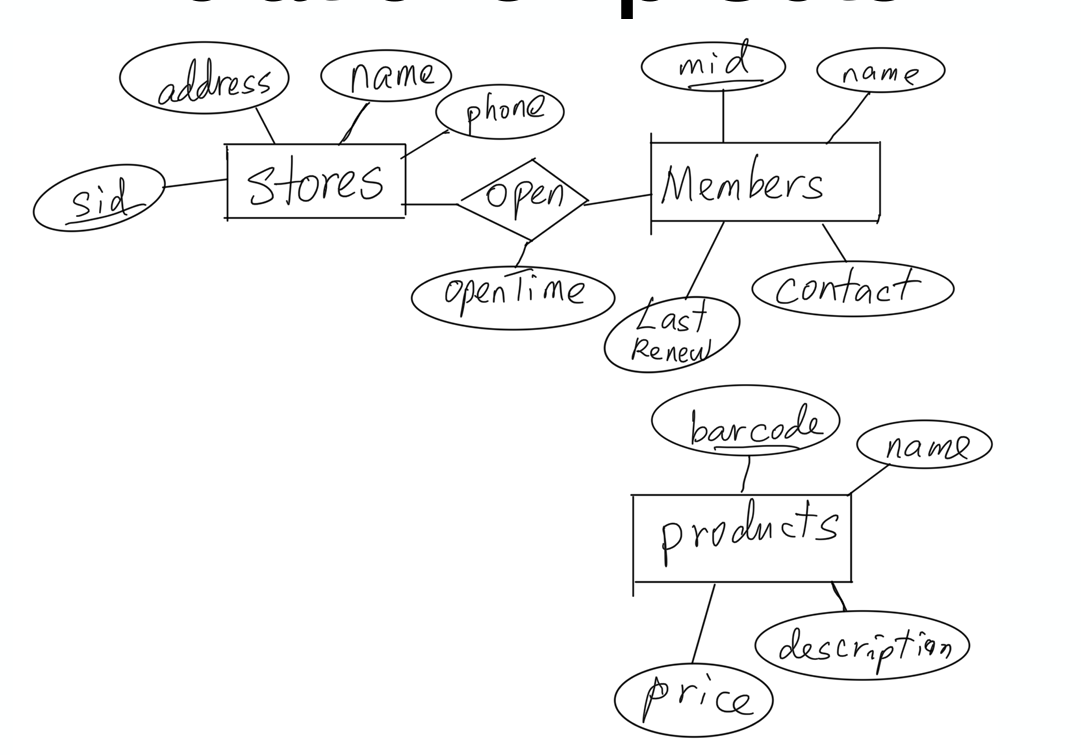 address
name
phone
sid
Stores
open
openTime
mid
name
Members
Last
Renew
contact
barcode
name
products
description
price